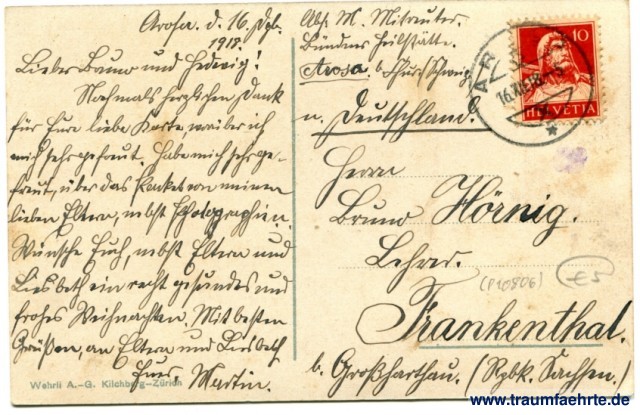 Arosa d. 16. Dez.
1918.
Lieber Bruno und Hedwig!
Nochmals herzlichen Dank
für Eure liebe Karte, worüber ich
mich sehr gefreut. Habe mich sehr ge-
freut, über das Packet von meinen
lieben Eltern, nebst Photographien.
Wünsche Euch, nebst Eltern und
Liesbeth ein recht gesundes und
frohes Weihnachten. Mit besten
Grüßen, an Eltern und Liesbeth
Euer Martin.
Wehrli A.-G. Kilchberg-Zürich
Abs. M.
Bündner Heilstätte.
Arosa b. Chur, Schweiz
n. Deutschland.
Herrn
Bruno Hörnig.
Lehrer.
Frankenthal.
b. Großharthau. (Sachsen.)
10
HELVETIA
16.XII.18
(P10806)
€5
www.traumfaehrte.de